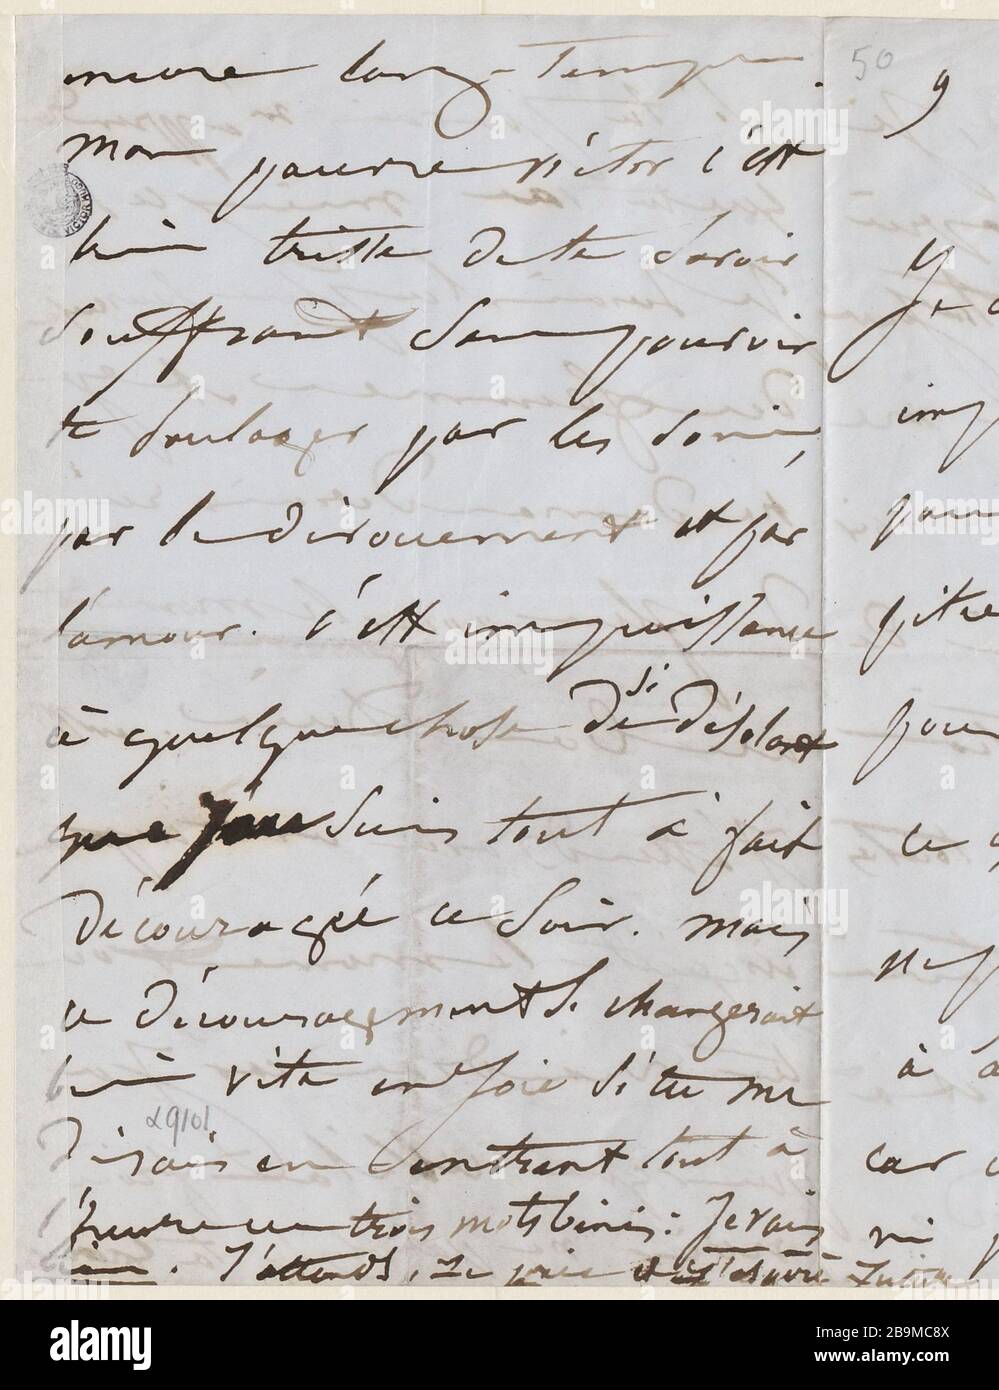 encore longtemps.
mon pauvre Victor c'est
bien triste de te savoir
souffrant sans pouvoir
te soulager par les soins,
par le dévouement et par
l'amour. c'est impuissance
à quelque chose de si désolant
que je suis tout à fait
découragée ce soir. mais
ce découragement se changerait
bien vite en joie si tu me
disais en rentrant tout à
l'heure ces trois mots bénis: je vais
bien. J'attends, je prie et j'espère Juliette
50
9
y
je
imp
pour
pitre
pour
ce q
ne p
à
car
ni
29101
VICTOR HUGO
alamy
Image ID: 2B9MC8X
www.alamy.com